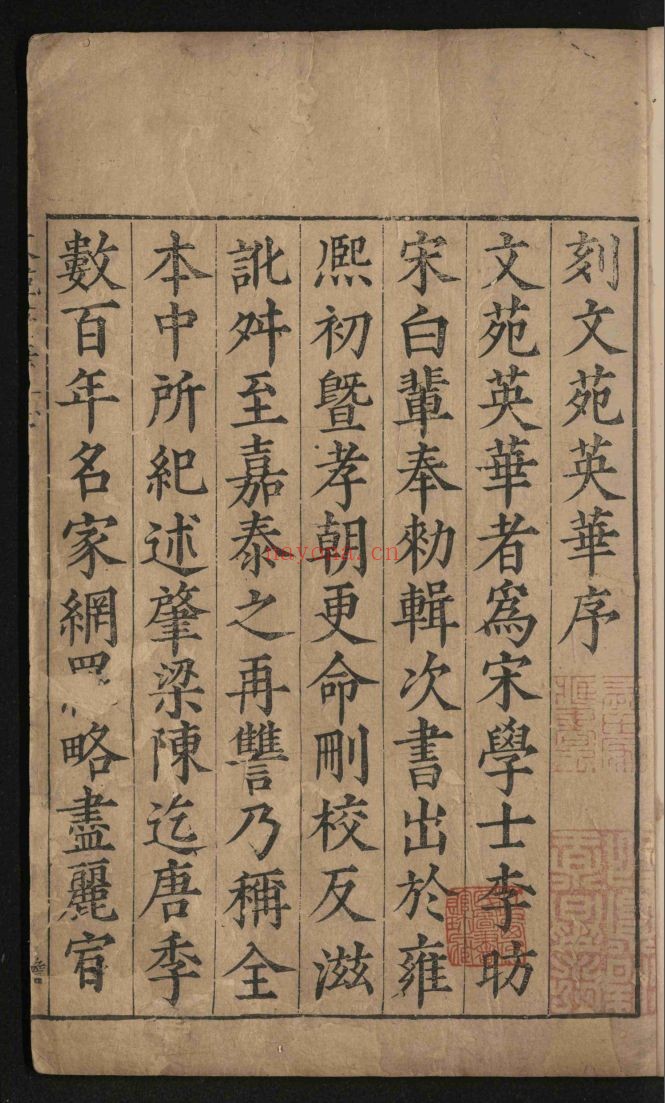 刻文苑英華序
文苑英華者爲宋學士李昉
宋白輩奉勑輯次書出於雍
熈初曁孝朝更命刪校反滋
訛舛至嘉泰之再讐乃稱全
本中所紀述肇梁陳迄唐季
數百年名家網略盡麗官